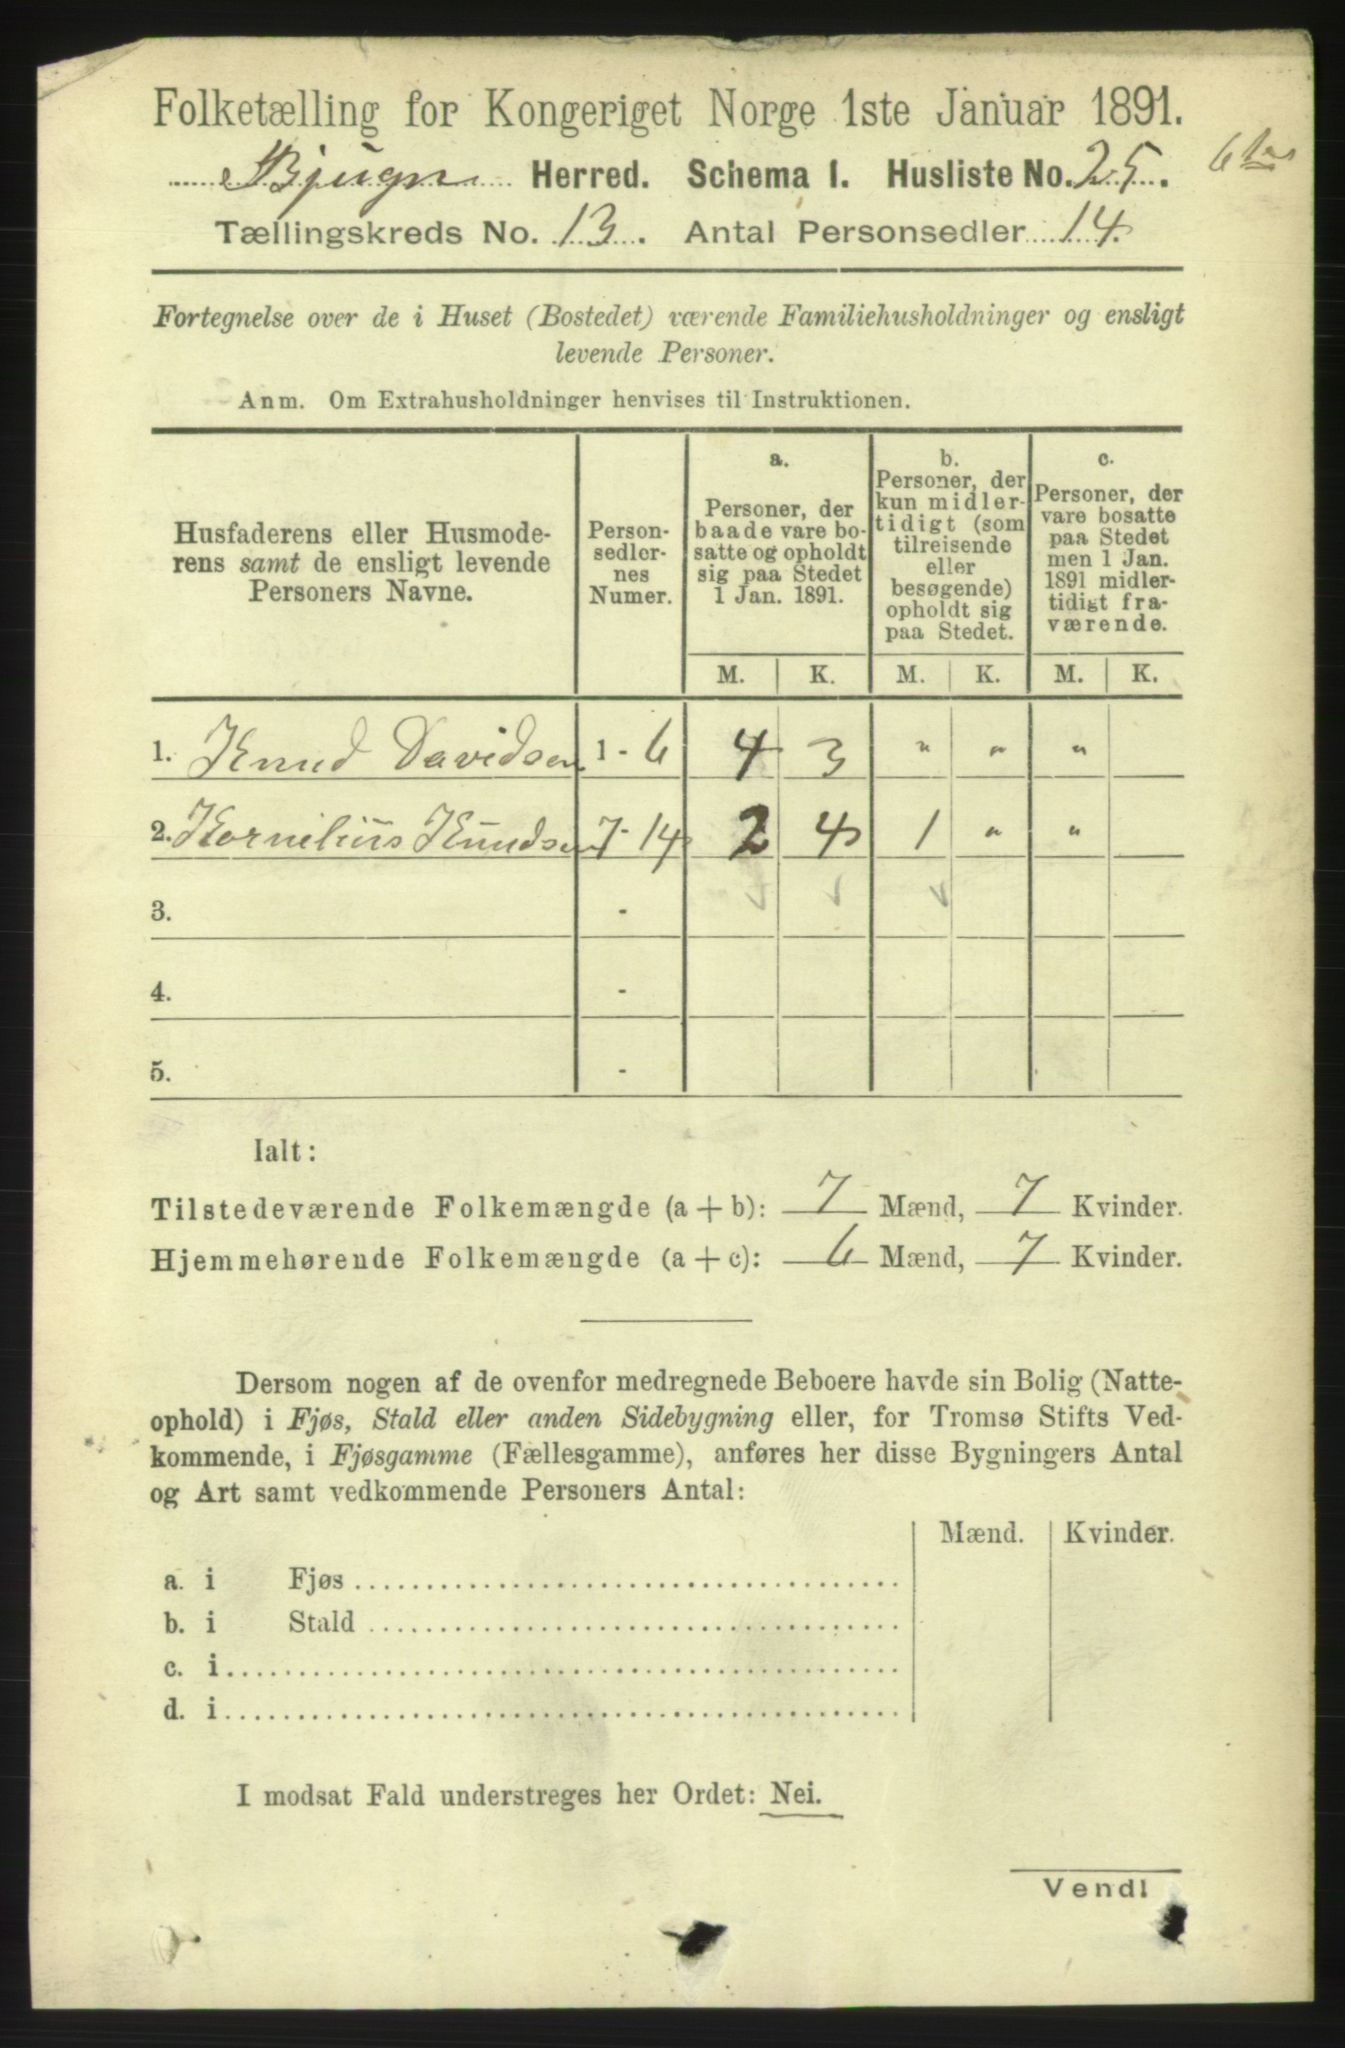 Folketælling for Kongeriget Norge 1ste Januar 1891.
Bjugn Herred. Schema 1. Husliste No. 25.
Tællingskreds No. 13. Antal Personsedler 14.
Fortegnelse over de i Huset (Bostedet) værende Familiehusholdninger og ensligt
levende Personer.
Anm. Om Extrahusholdninger henvises til Instruktionen.
Husfaderens eller Husmode-
rens samt de ensligt levende
Personers Navne.
Person-
sedler-
nes
Numer.
a.
Personer, der
baade vare bo-
satte og opholdt
sig paa Stedet
1 Jan. 1891.
b.
Personer, der
kun midler-
tidigt (som
tilreisende
eller
besøgende)
opholdt sig
paa Stedet.
c.
Personer, der
vare bosatte
paa Stedet
men 1 Jan.
1891 midler-
tidigt fra-
værende.
M. K. M. K. M. K.
1. Knud Davidsen 1 - 6 4 3 " " "
2. Kornelius Knudsen 7 - 14 2 4 1 " "
3. -
4. -
5. -
Ialt:
Tilstedeværende Folkemængde (a + b): 7 Mænd, 7 Kvinder.
Hjemmehørende Folkemængde (a + c): 6 Mænd, 7 Kvinder.
Dersom nogen af de ovenfor medregnede Beboere havde sin Bolig (Natte-
ophold) i Fjøs, Stald eller anden Sidebygning eller, for Tromsø Stifts Ved-
kommende, i Fjøsgamme (Fællesgamme), anføres her disse Bygningers Antal
og Art samt vedkommende Personers Antal:
Mænd. Kvinder.
a. i Fjøs
b. i Stald
c. i
d. i
I modsat Fald understreges her Ordet: Nei.
Vend!